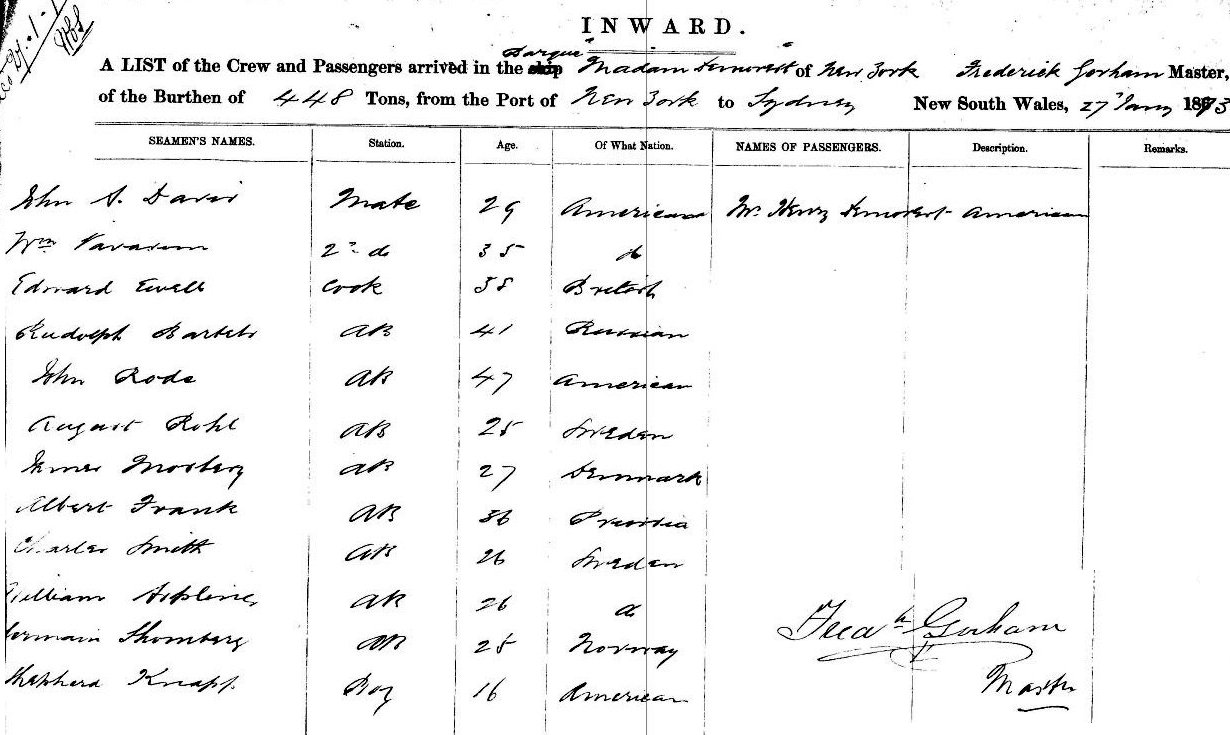 INWARD.
Barque
A LIST of the Crew and Passengers arrived in the ship "Madam Demorest" of New York Frederick Gorham Master,
of the Burthen of 448 Tons, from the Port of New York to Sydney New South Wales, 27 Jany 1873
SEAMEN'S NAMES. Station. Age. Of What Nation. NAMES OF PASSENGERS. Description. Remarks.
John S. Davis Mate 29 American Mr. Henry Demorest American
Wm 2nd do 35 do
Edward Ewell Cook 38 British
Rudolph Bartels AB 41 Russian
John Rode AB 47 American
August Rohl AB 25 Sweden
Mosberg AB 27 Denmark
Albert Frank AB 36 Prussia
Charles Smith AB 26 Sweden
William AB 26 do
Shomberg AB 25 Norway
Shepherd Knapp Boy 16 American
Fredk Gorham
Master